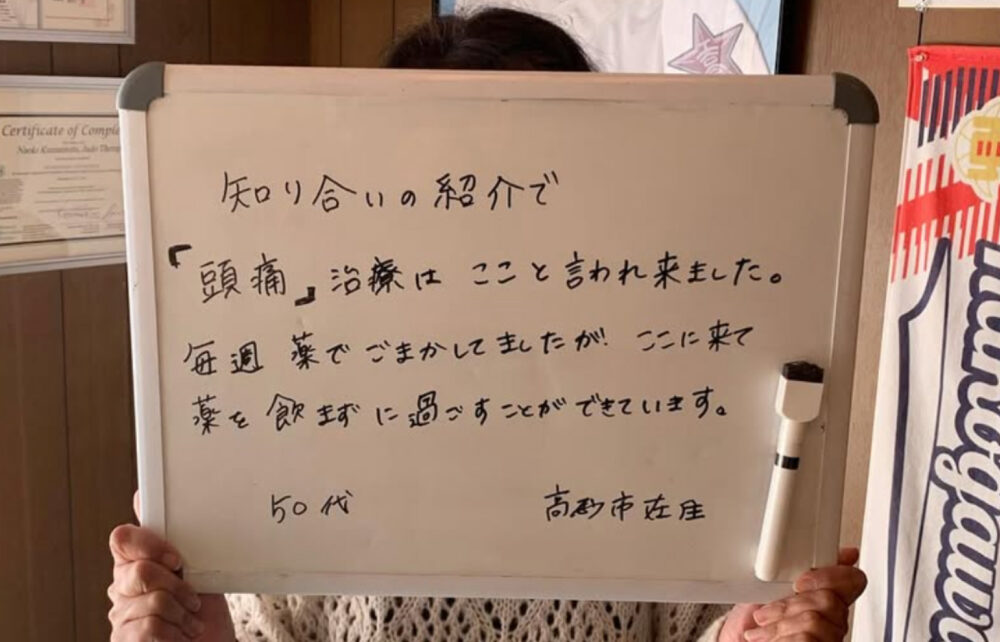 Certificate of Comple
知り合いの紹介で
「頭痛」治療は ここと言われ来ました。
毎週 薬でごまかしてましたが! ここに来て
薬を飲まずに過ごすことができています。
50代 高砂市在住